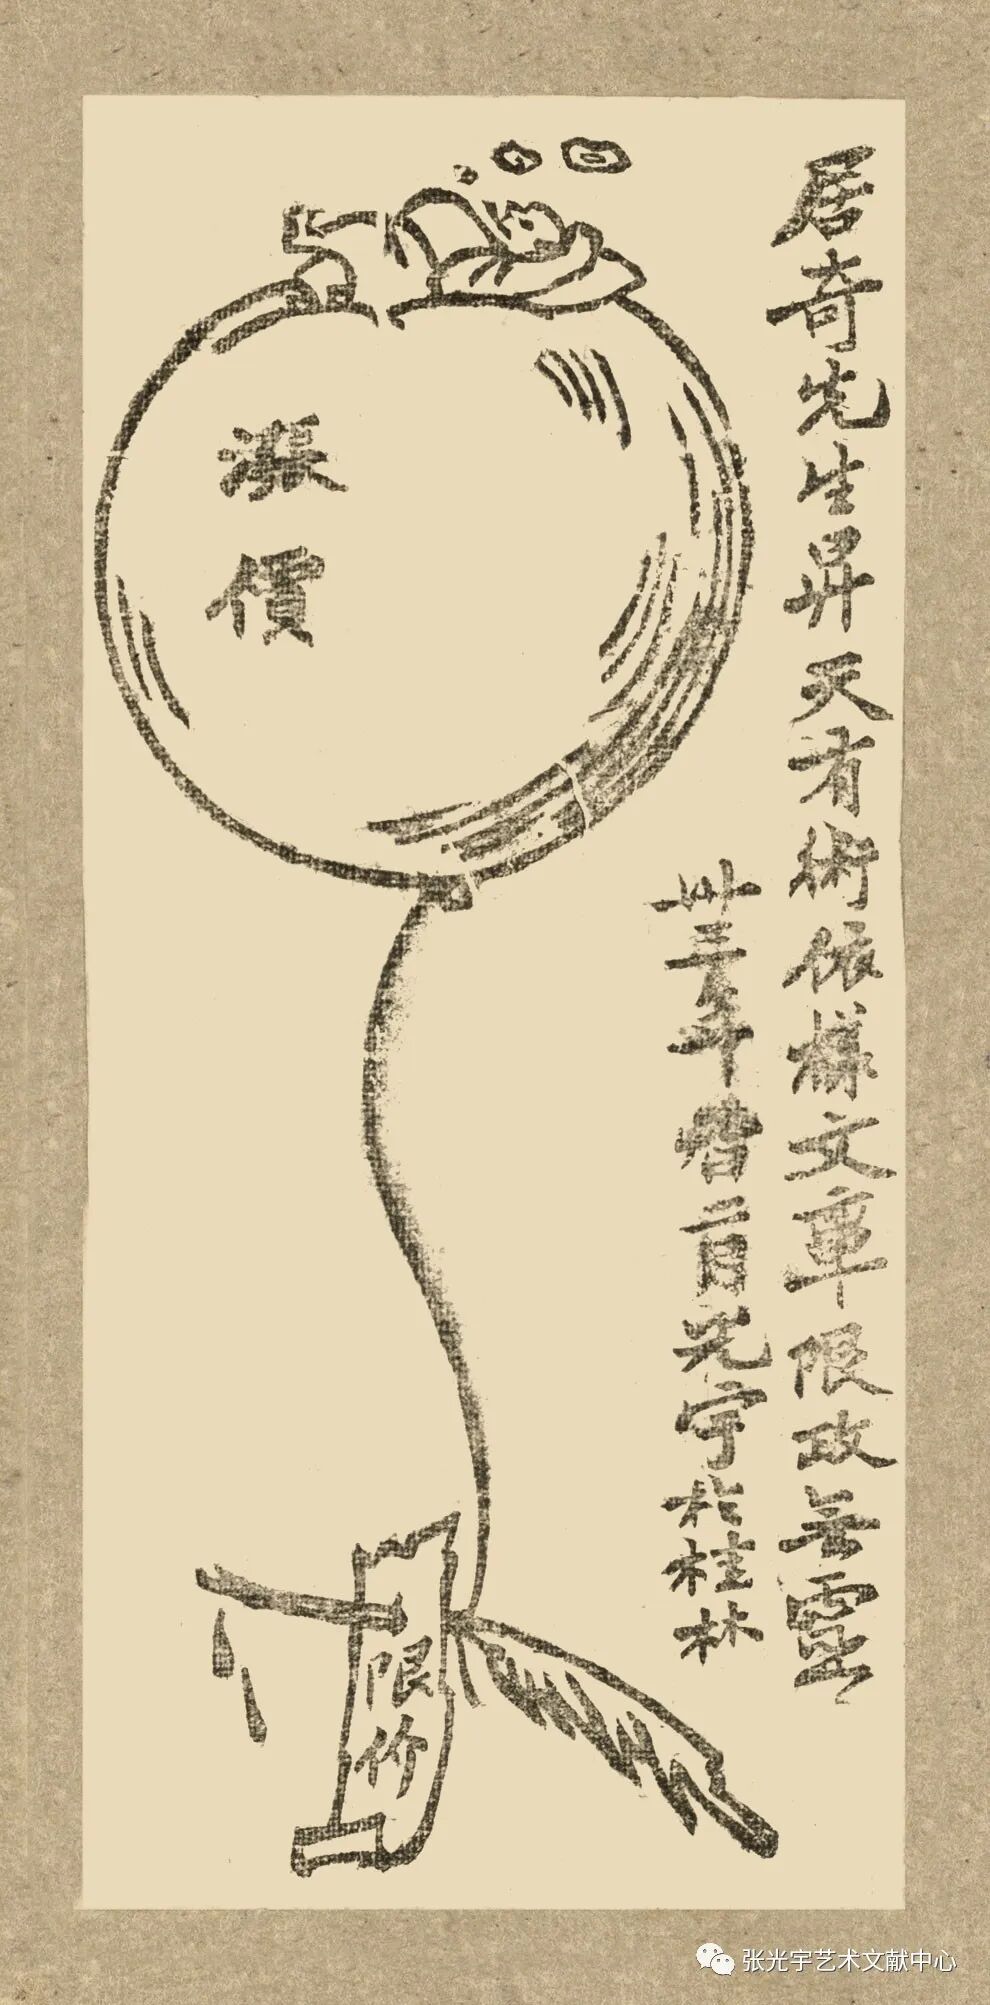 居奇先生昇天有術依樣文章限政無靈
卅三年旾二月光宇於桂林
漲價
限价
张光宇艺术文献中心